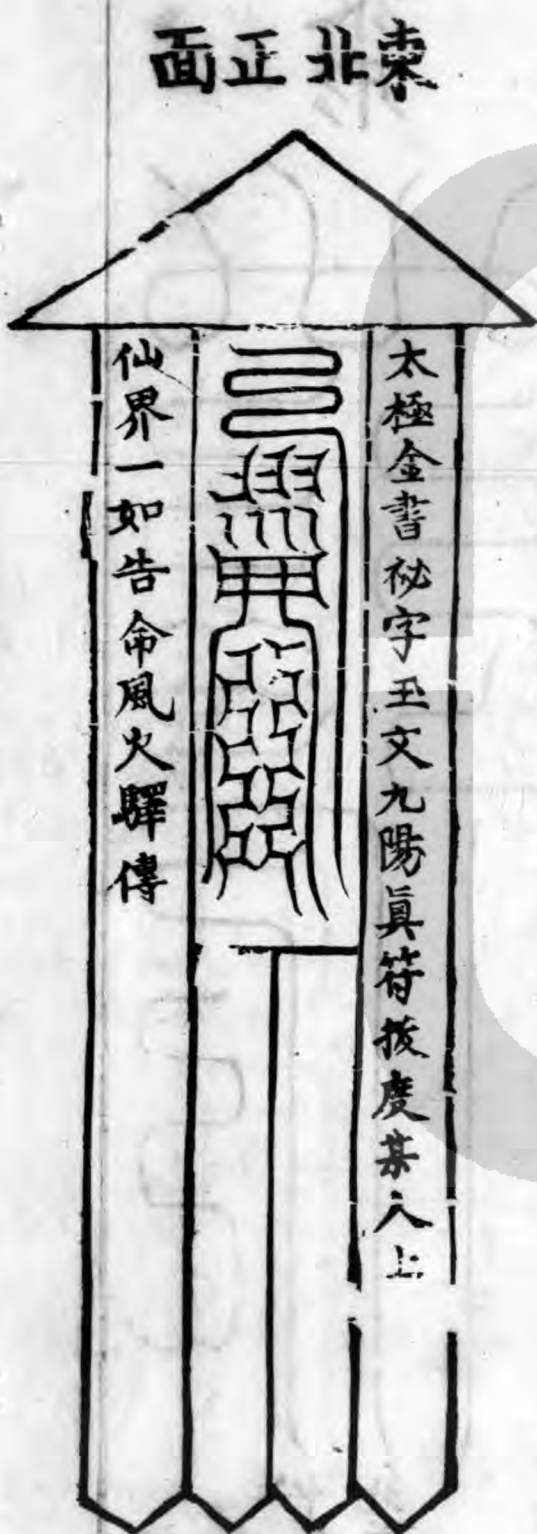 東北正面
太極金書祕字玉文九陽真符拔度某人上
仙界一如告命風火驛傳